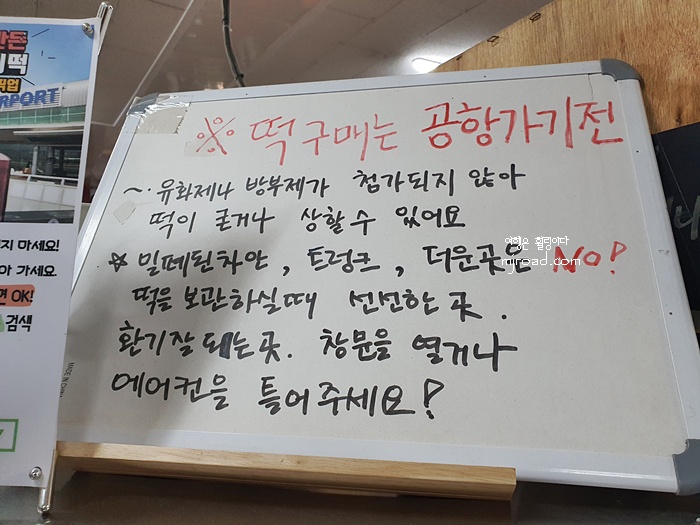 ※ 떡구매는 공항가기전
~. 유화제나 방부제가 첨가되지 않아
떡이 굳거나 상할 수 있어요
☆ 밀폐된차안, 트렁크, 더운곳은 NO!
떡을 보관하실때 선선한 곳.
환기잘되는곳. 창문을 열거나
에어컨을 틀어주세요!
여행은 힐링이다
njroad.com
만든
떡
픽업
RPORT
지 마세요!
아 가세요.
면 OK!
검색
MADE IN CHINA